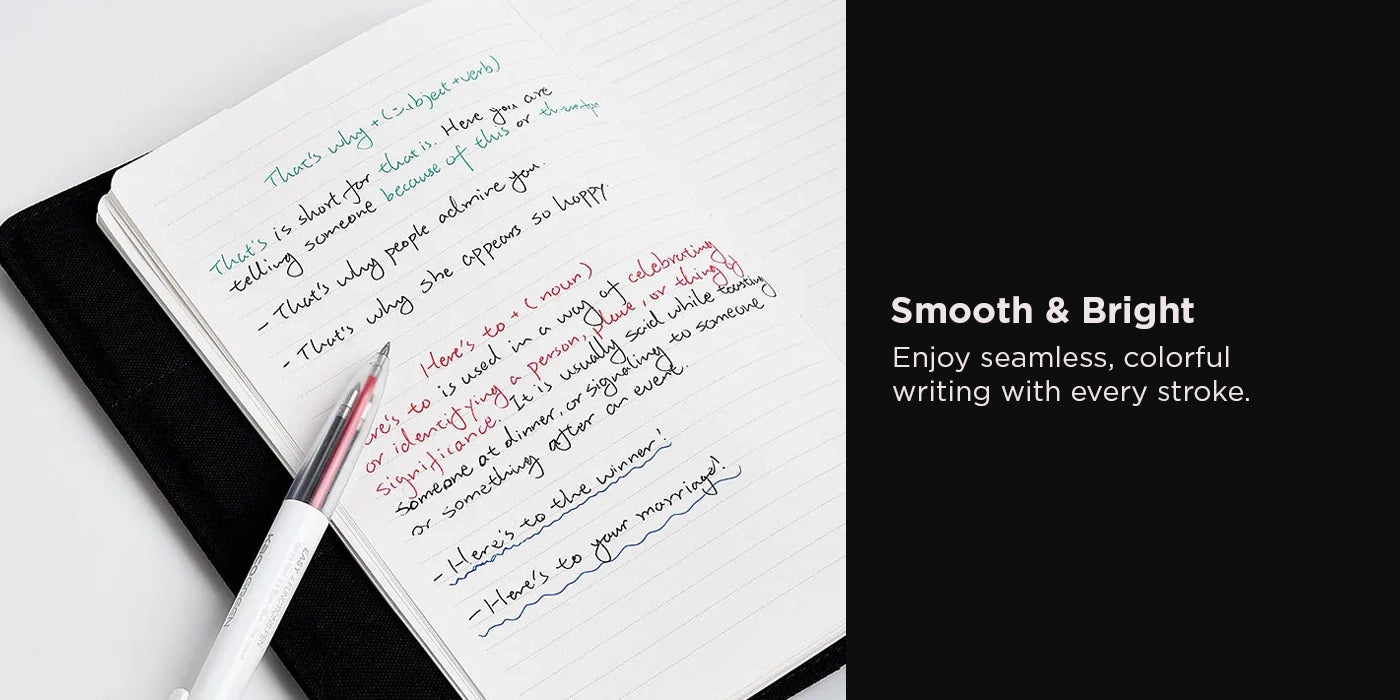 That's why + (subject + verb)
That's is short for that is. Here you are
telling someone because of this or
- That's why people admire you.
- That's why she appears so happy.
Here's to + (noun)
to is used in a way of celebrating
or identifying a person, place, or thing of
significance. It is usually said while toasting
someone at dinner, or signaling to someone
or something after an event.
- Here's to the winner!
- Here's to your marriage!
KACOGREEN
EASY 4 FUNCTIONS PEN
Smooth & Bright
Enjoy seamless, colorful
writing with every stroke.